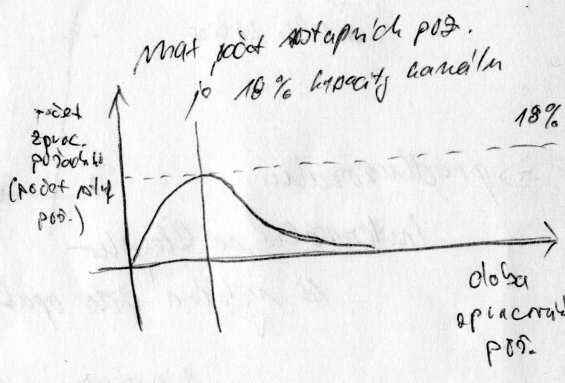 max počet vstupních pož.
je 18% kapacity kanálu
18%
počet
zprac.
požadavků
(počet vstup
pož.)
doba
zpracování
pož.